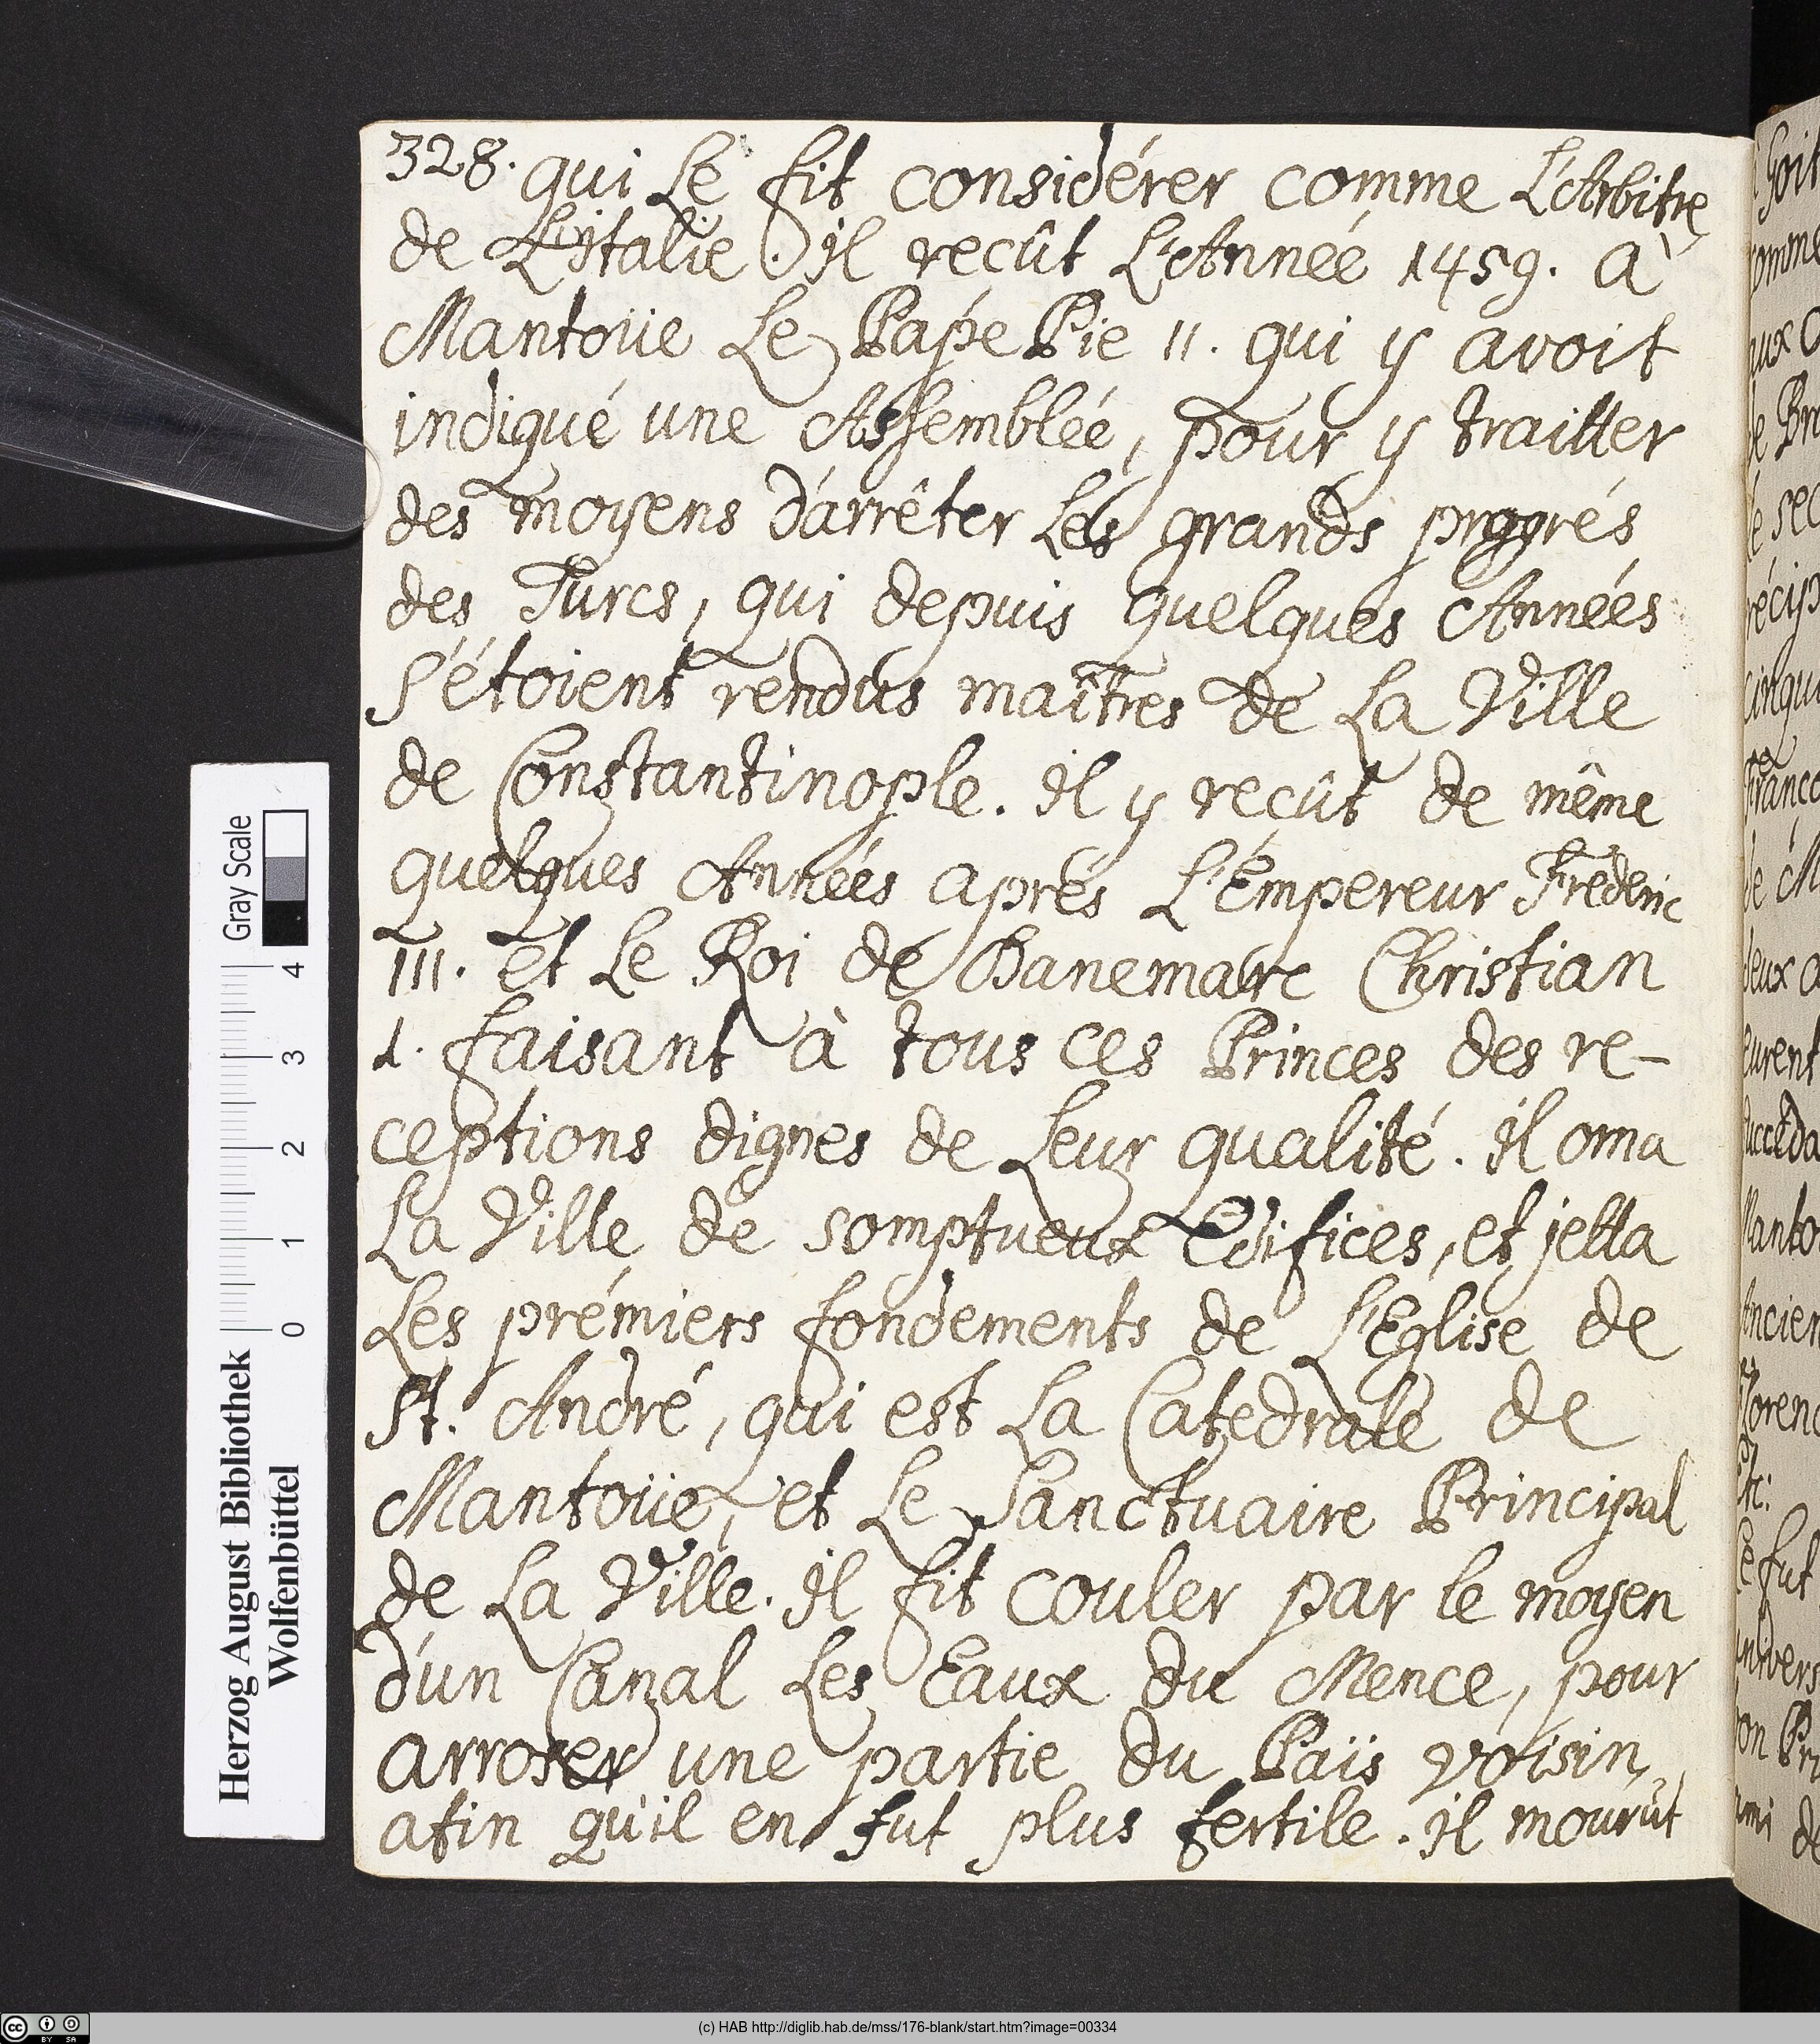 328. qui Le fit considérer comme L'Arbitre
de L'jtalie. il recût L'Année 1459. à
Mantoüe Le Pape Pie II. qui y avoit
indiqué une Assemblée, pour y traitter
des moyens d'arrêter Les grands progrés
des Turcs, qui depuis quelques Années
S'étoient rendus maîtres de La Ville
de Constantinople. il y recût de même
quelques Années aprés L'Empereur Frederic
III. et Le Roi de Danemarc Christian
I. faisant à tous ces Princes des re-
ceptions dignes de Leur qualité. il orna
La Ville de somptueux Edifices, et jetta
Les prémiers fondements de L'Eglise de
St. André, qui est La Catedrale de
Mantoüe, et Le Sanctuaire Principal
de La Ville. il fit couler par le moyen
d'un Canal Les Eaux du Mence, pour
arroser une partie du Païs voisin,
afin qu'il en fut plus fertile. il mourût
Herzog August Bibliothek
Wolfenbüttel
0 1 2 3 4
Gray Scale
cc BY SA
(c) HAB http://diglib.hab.de/mss/176-blank/start.htm?image=00334